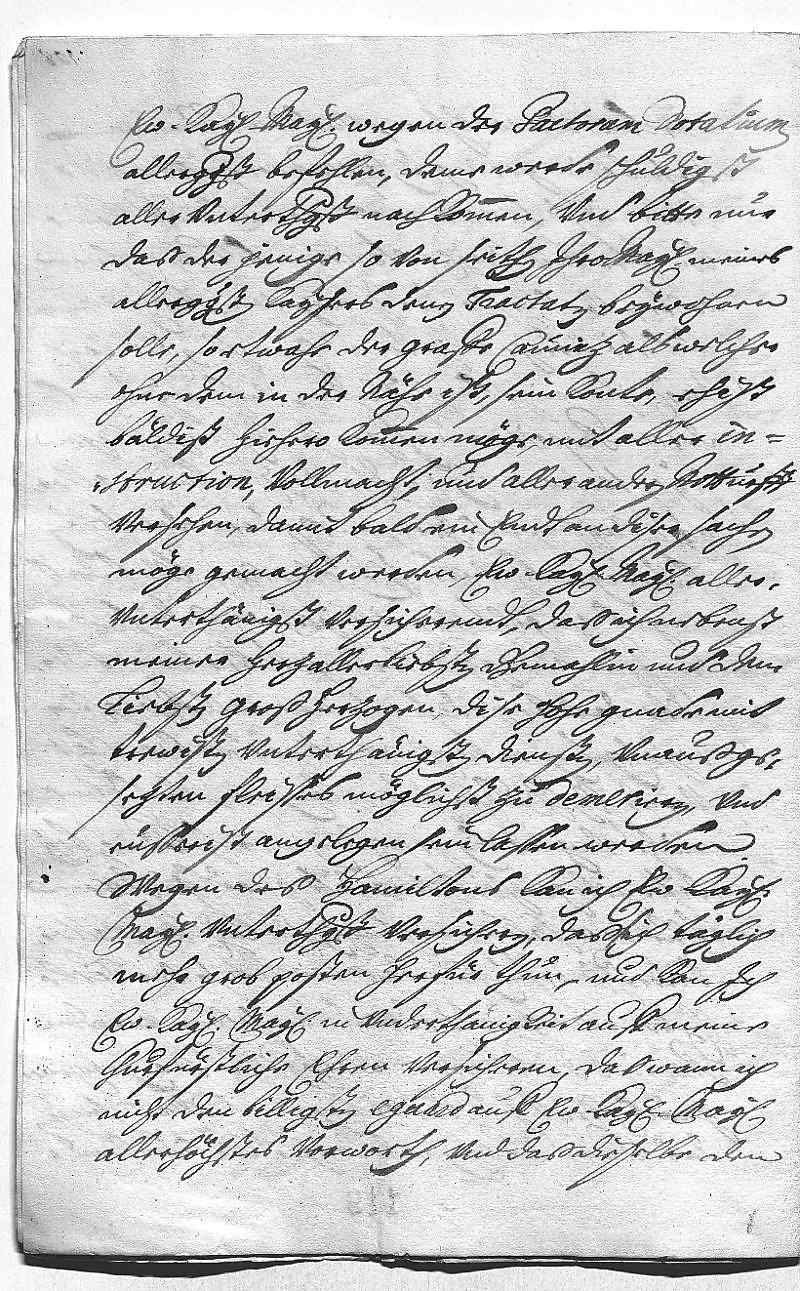 Ew. Kayl. Mayl. wegen der Pactorum Dotalium
allergdst befohlen, deme werde schuldigst
aller Unterthgst nachkommen, Und bitte nur
das der jenige so von seithen Ihro Mayl. meines
allergdsten Kaysers denen Tractaten beywohnen
solle, so etwahe der graffe Caunitz alß welcher
ohne dem in der Nähe ist, sein konte, ehist
baldist hiehero kommen möge, mit aller in=
struction, Vollmacht, und aller andern Notturfft
Versehen, damit bald ein Endt an diser sachen
möge gemacht werden, Ew. Kayl. Mayl. aller=
Unterthänigst Versicherendt, das ich nebenst
meiner herzallerliebsten Gemahlin und dem
Liebsten Großherzogen, dise hohe gnade mit
trewisten Unterthänigsten diensten, Unaußge=
setzten fleisses möglichst zu demeriren, Und
eusserist angelegen sein lassen werden
Wegen des Hamiltons kan ich Ew. Kayl.
Mayl. Unterthgst Versichern, das sich täglich
mehr grobe posten herfür thun, und kan Ich
Ew. Kayl. Mayl. in Underthänigkeit auff meine
Churfürstliche Ehren Versicheren, das wann ich
nicht den billigsten egard auff Ew. Kayl. Mayl.
allerhöchstes Vorworth, Und das dieselbe den